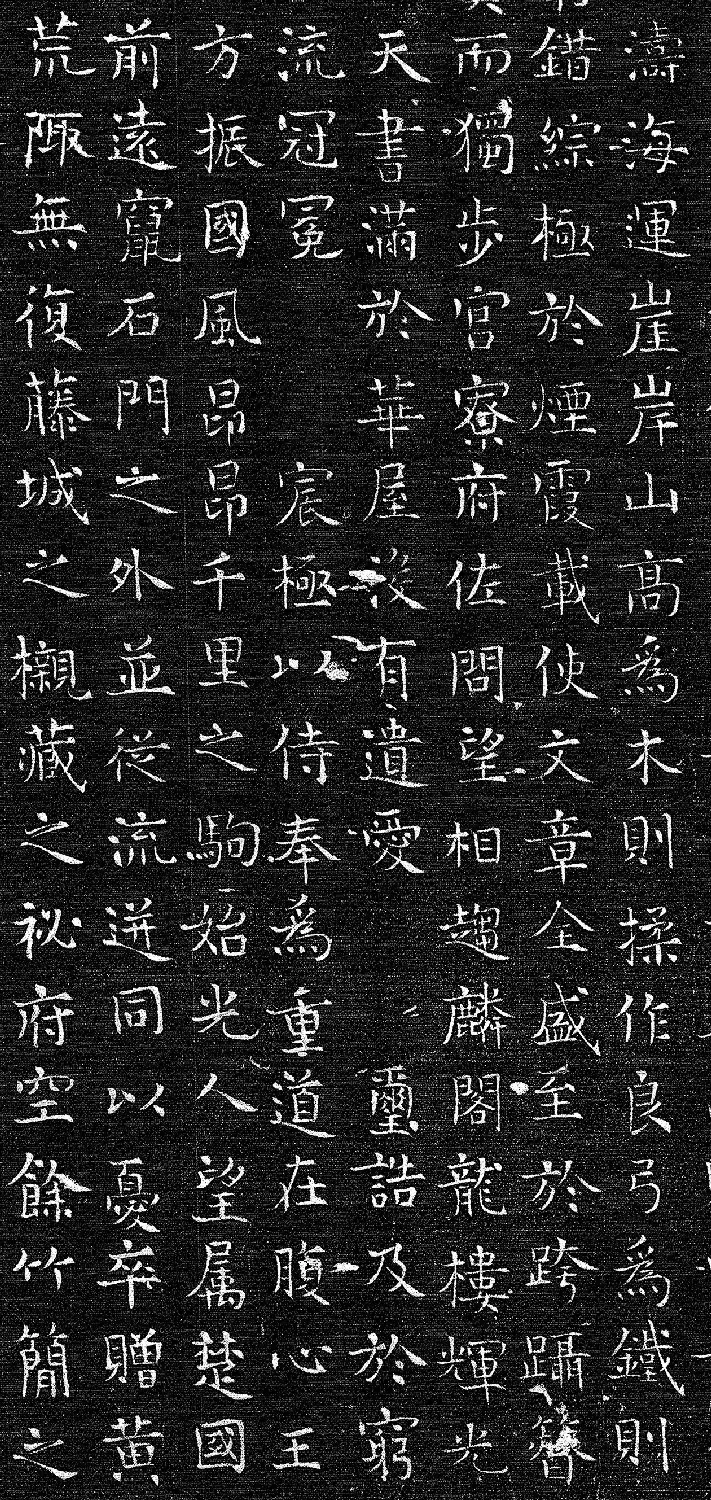 濤海運崖岸山高為木則揉作良弓為鐵則
錯綜極於煙霞載使文章全盛至於跨躡簪
而獨步宮寮府佐問望相趨麟閣龍樓輝光
天書滿於華屋後有遺愛璽誥及於窮
流冠冕宸極以侍奉為重道在腹心王
方振國風昂昂千里之駒始光人望属楚國
前遠竄石門之外並從流迸同以憂卒贈黄
荒陬無復藤城之櫬藏之祕府空餘竹簡之